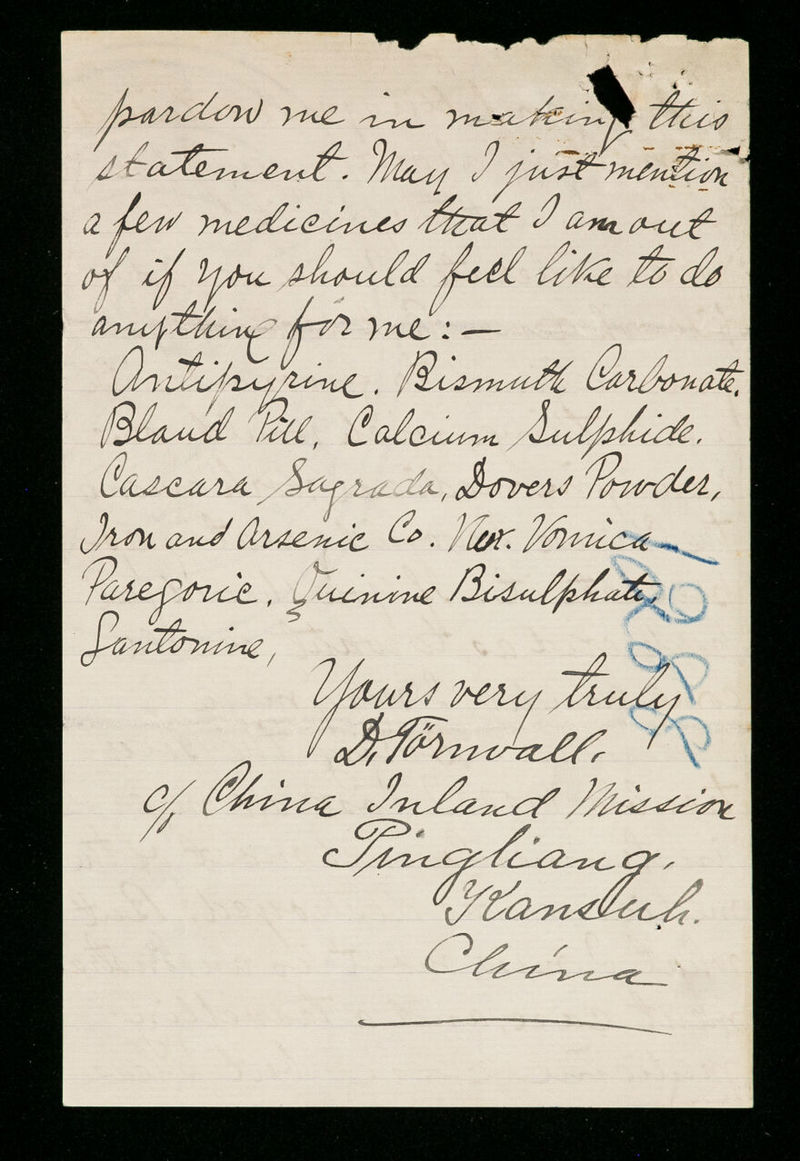 pardon me in making this
statement. May I just mention
a few medicines that I am out
of if you should feel like to do
anything for me: —
Antipyrine. Bismuth Carbonate.
Blaud Pill, Calcium Sulphide.
Cascara Sagrada, Dovers Powder,
Iron and Arsenic Co. Nux. Vomica
Paregoric. Quinine Bisulphate,
Santonine,
Yours very truly
D. Törnvall.
c/o China Inland Mission
Pingliang.
Kansuh.
China
1288